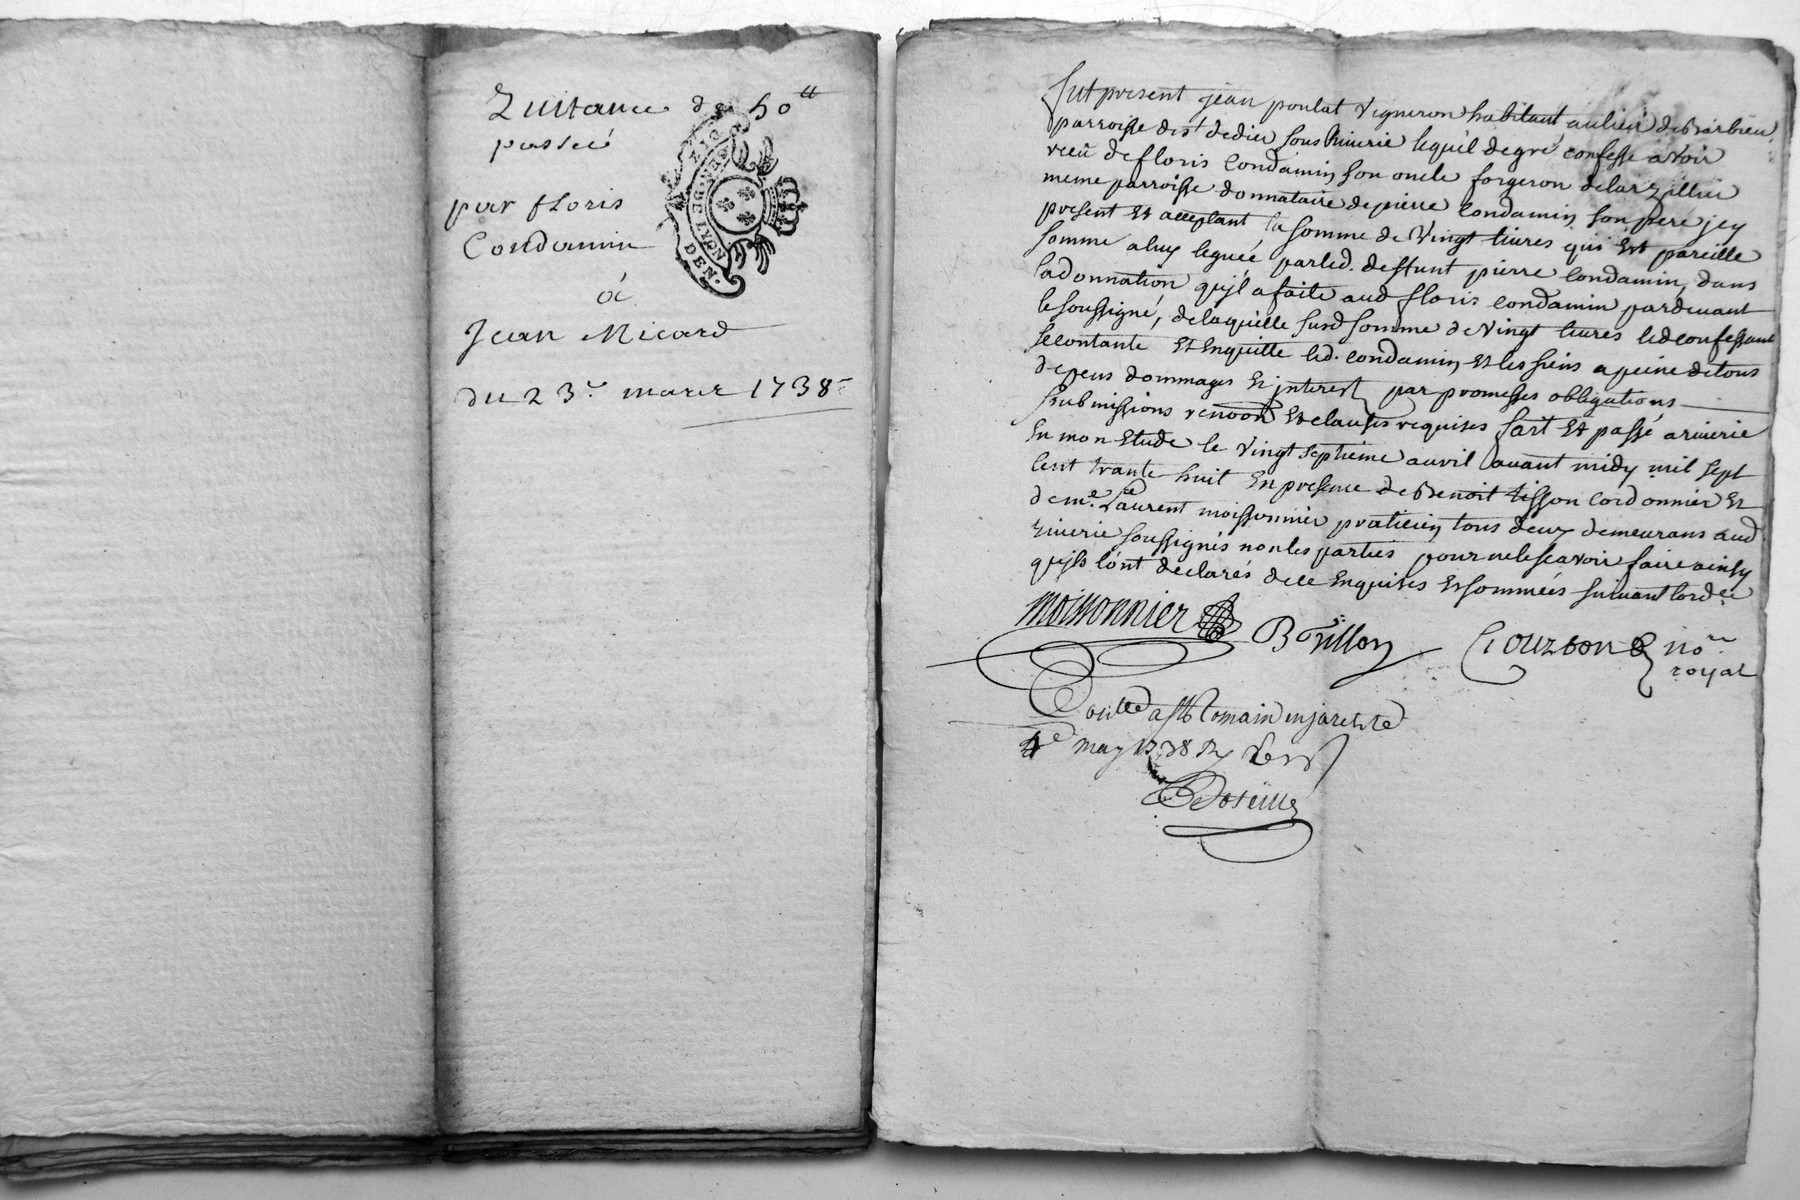 Quittance de 50ᵗᵗ
passée
par floris
Condamin
à
Jean Micard
du 23ᵉ mars 1738
GEN. DE LYON
DEN.
fut present jean poulat vigneron habitant au lieu de Barbieu
parroisse de sᵗ dedier sous Riuerie lequél de gré confesse avoir
receû de floris Condamin son oncle forgeron de larzillier
meme parroisse donnataire de pierre Condamin son pere jcy
present et acceptant la somme de Vingt liures qui est pareille
somme a luy leguée par led. deffunt pierre Condamin, dans
la donnation qu'jl a faite aud floris condamin pardeuant
le soussigné, de laquélle susd somme de Vingt liures led confessant
se contante et en quitte led. condamin et les siens a peine de tous
depens dommages et jnterest par promesses obligations
submissions renoon et clauses requises fait et passé a riuerie
en mon Etude le vingt septieme auril auant midy mil sept
cent trante huit en presence de Benoit tisson cordonnier et
de mᵉ Laurent moissonnier praticien tous deux demeurans aud
riuerie soussignés non les parties pour ne le scavoir faire ainsy
qu'jls l'ónt declarés de ce enquises et sommeés suiuant lordce
moissonnier B tisson Crouzbon noʳᵉ
royal
Conᵗˡˡᵉ a sᵗ Romain en jarest le
4ᵉ may 1738 R